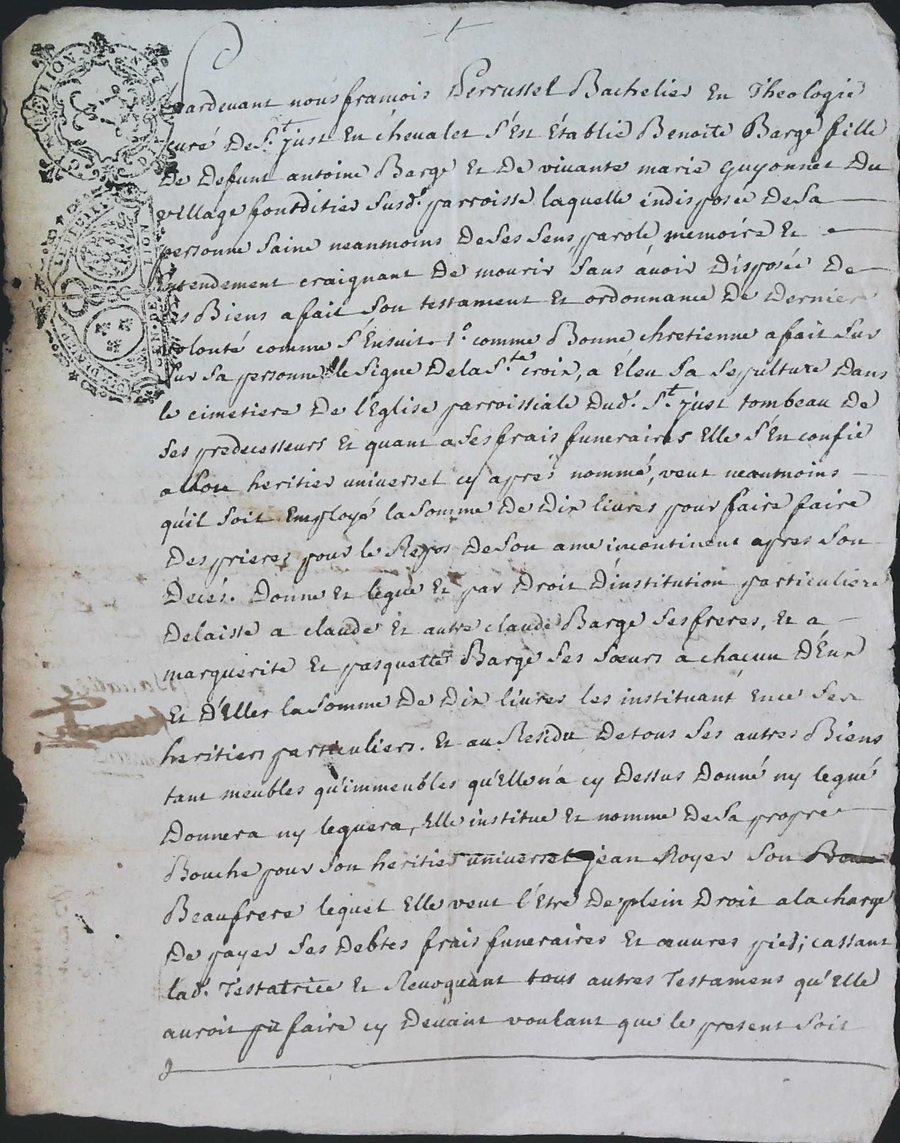 pardevant nous francois Perrussel Bachelier En Theologie
curé De St. just En chevalet S'Est Etablie Benoite Barge fille
De Defunt antoine Barge Et De vivante marie Guyonnet Du
village fontditier Susd. parroisse laquelle indisposée De Sa
personne Saine neanmoins De Ses Sens parole memoire Et
Entendement craignant De mourir Sans avoir Disposée De
ses Biens a fait Son testament Et ordonnance De Derniere
volonté comme S'Ensuit. 1°. comme Bonne chretienne a fait Sur
Sur Sa personne le Signe De la Ste. croix, a Eleu Sa Sepulture Dans
le cimetiere De l'Eglise parroissiale Dud. St. just tombeau De
Ses predecesseurs Et quant a Ses frais funeraires Elle S'En confie
a heritier universel cy aprés nommé, veut neantmoins
qu'il Soit Employé la Somme De Dix livres pour faire faire
Des prieres pour le Repos De Son ame incontinent apres Son
Decés. Donne Et legue Et par Droit D'institution particuliere
Delaisse a claude Et autre claude Barge Ses freres, Et a
marguerite Et pasquette Barge Ses Sœurs a chacun D'Eux
Et D'Elles la Somme De Dix livres les instituant En ce Ses
heritiers particuliers. Et au Residu De tous Ses autres Biens
tant meubles qu'immeubles qu'Elle n'a cy Dessus Donné ny legué
Donnera ny leguera, Elle institue Et nomme De Sa propre
Bouche pour Son heritier universel jean Royer Son
Beaufrere lequel Elle veut l'Etre De plein Droit a la charge
De payer Ses Debtes frais funeraires Et œuvres pies; cassant
lad. Testatrice Et Revoquant tous autres Testamens qu'Elle
auroit pû faire cy Devant voulant que le present Soit